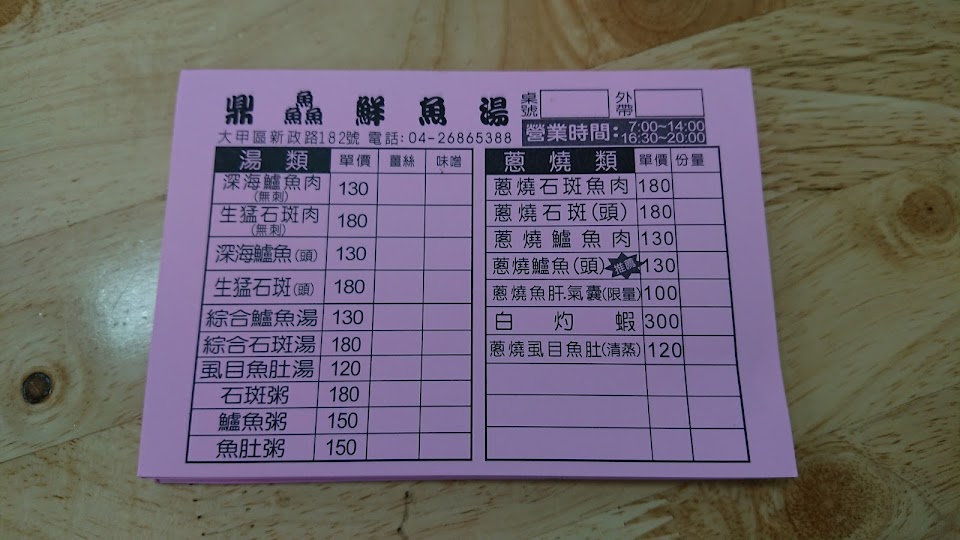 鼎鱻鮮魚湯
桌號
外帶
大甲區新政路182號 電話:04-26865388
營業時間:7:00~14:00
16:30~20:00
湯類 單價 薑絲 味噌
深海鱸魚肉(無刺) 130
生猛石斑肉(無刺) 180
深海鱸魚(頭) 130
生猛石斑(頭) 180
綜合鱸魚湯 130
綜合石斑湯 180
虱目魚肚湯 120
石斑粥 180
鱸魚粥 150
魚肚粥 150
蔥燒類 單價 份量
蔥燒石斑魚肉 180
蔥燒石斑(頭) 180
蔥燒鱸魚肉 130
蔥燒鱸魚(頭) 推薦 130
蔥燒魚肝.氣囊(限量) 100
白灼蝦 300
蔥燒虱目魚肚(清蒸) 120